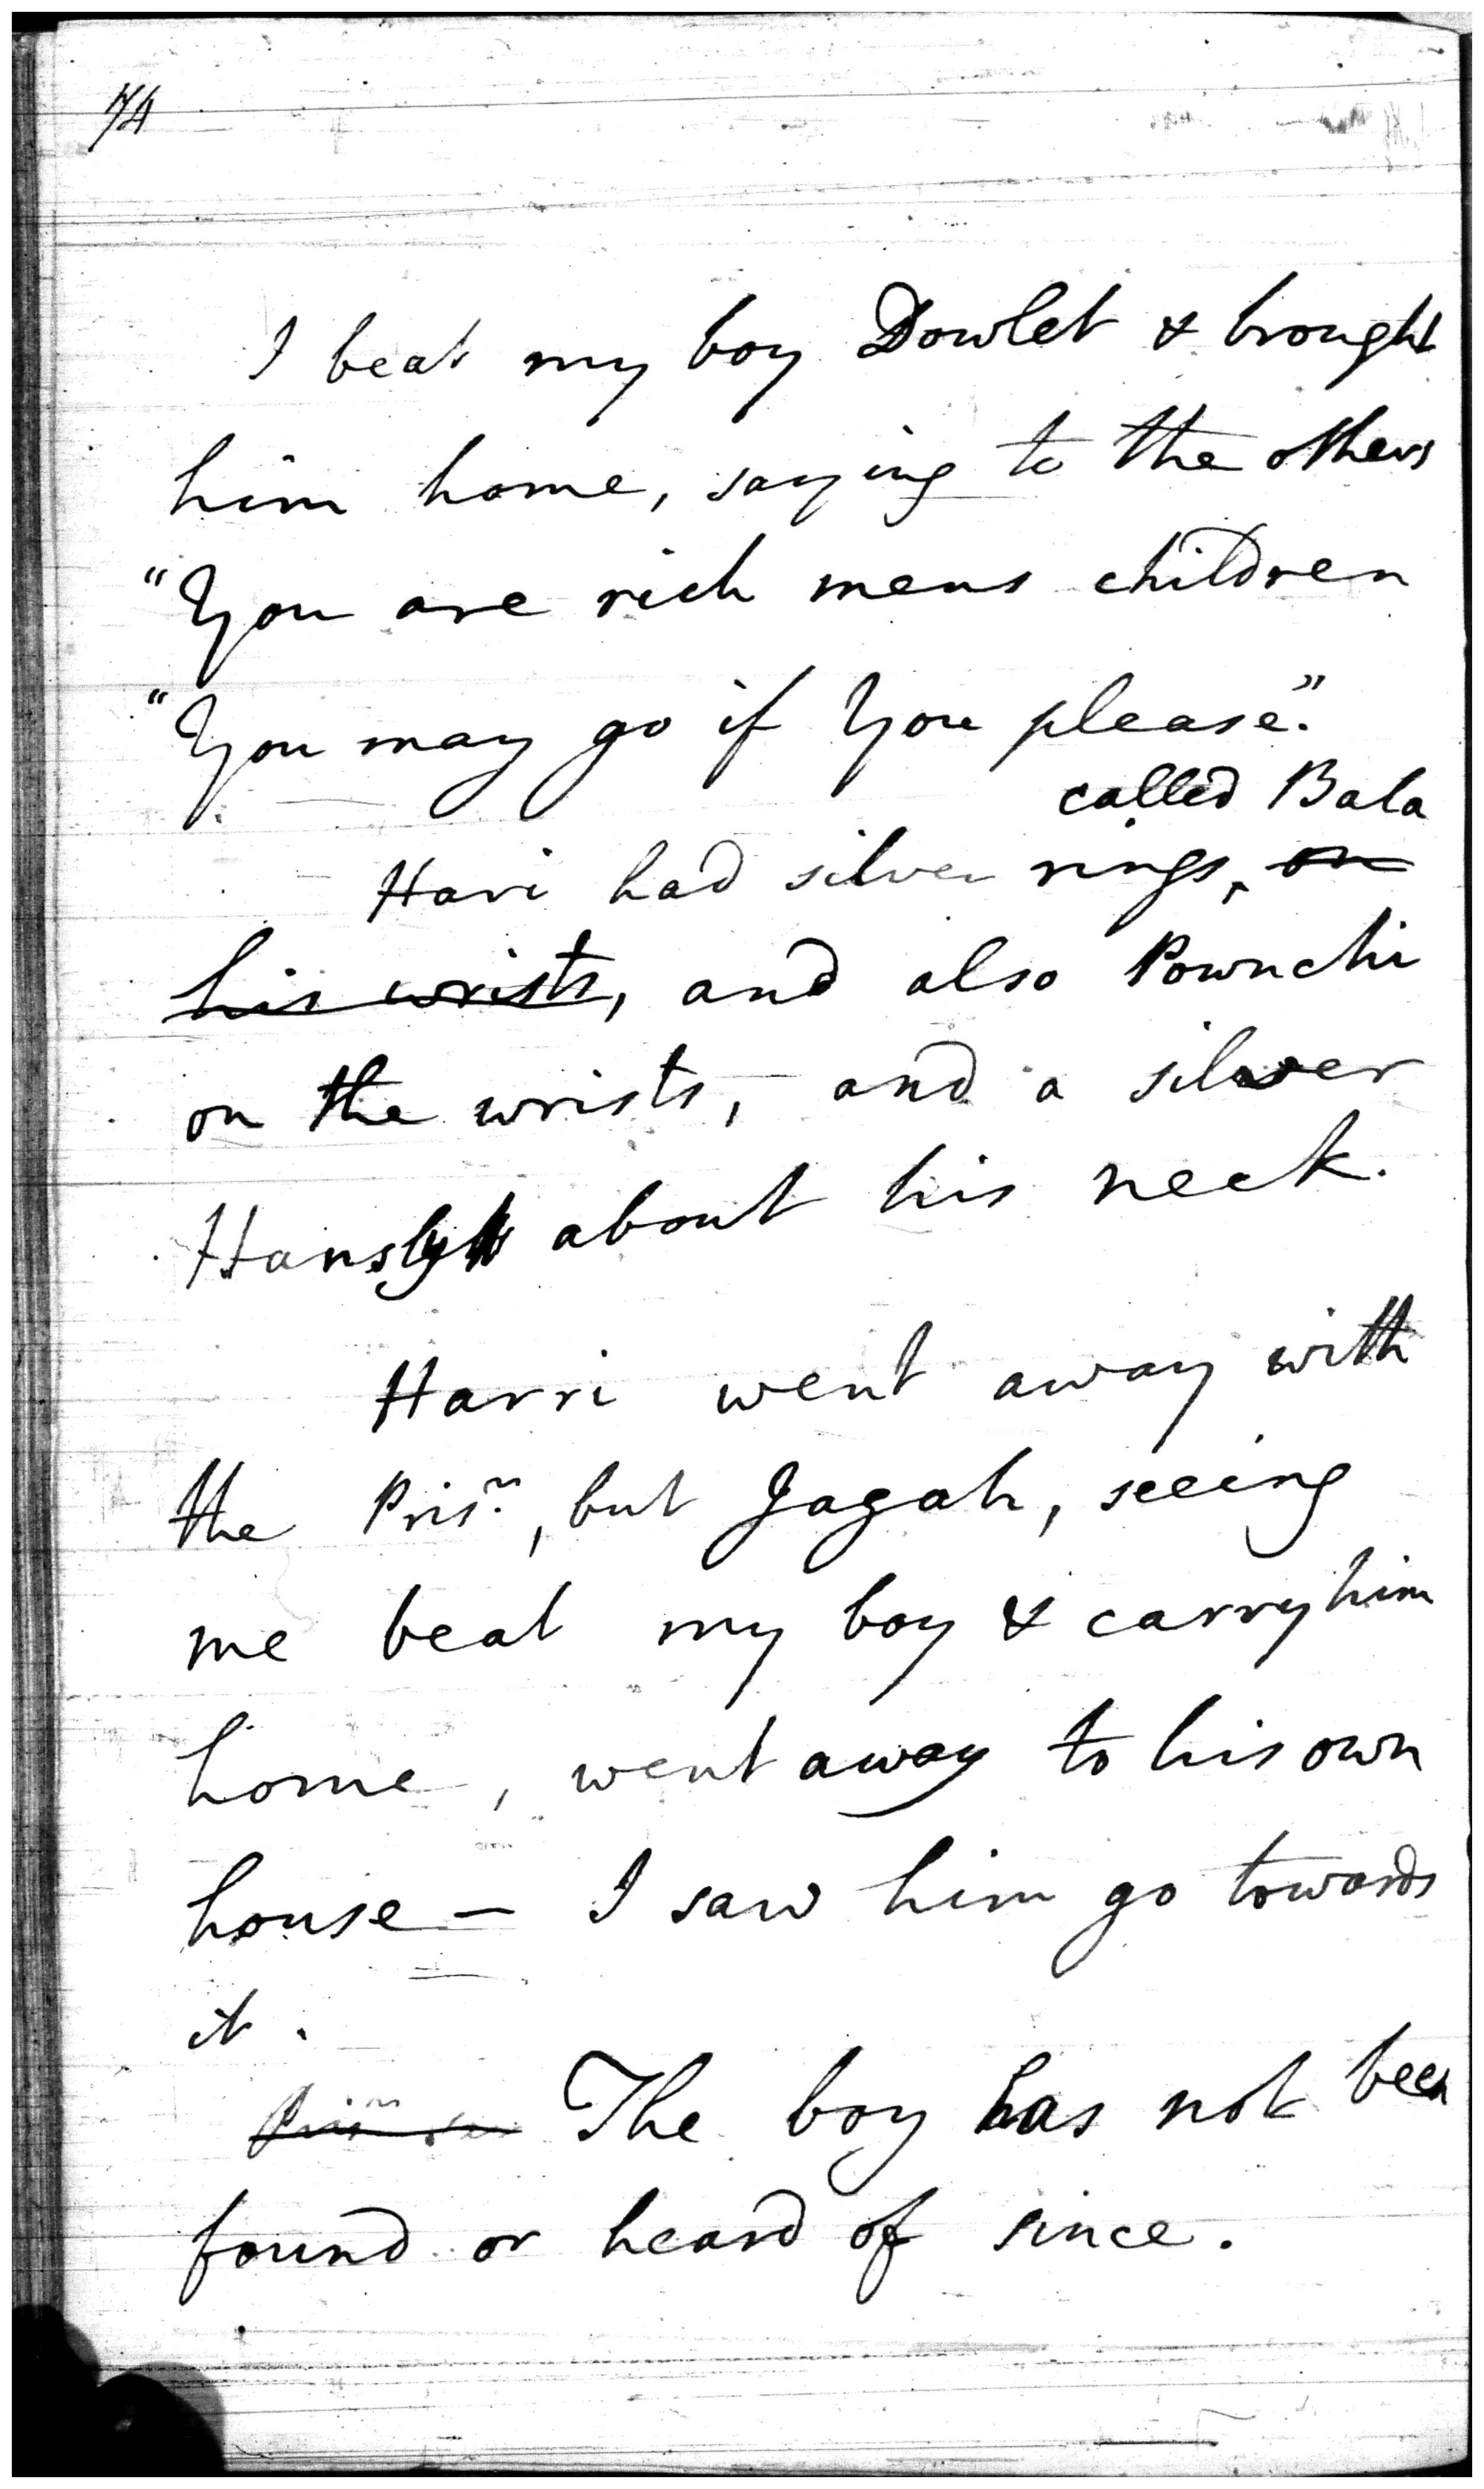 74
I beat my boy Dowlet & brought
him home, saying to the others
"You are rich mens children
"You may go if You please."
called Bala
Hari had silver rings, on
his wrists, and also Pownchi
on the wrists, and a silver
about his neck.
Harri went away with
the Prisr., but Jagah, seeing
me beat my boy & carry him
home, went away to his own
house – I saw him go towards
it.
The boy has not been
found or heard of since.